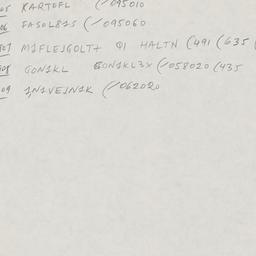 05 KARTOFL (/095010
06 FASOL81S (/095060
907 M1FLEJGOLT+ Q1 HALTN (491 (635 (
908 GON1KL GON1KL3X (/058020 (435
909 1N1VEJN1K (/062020